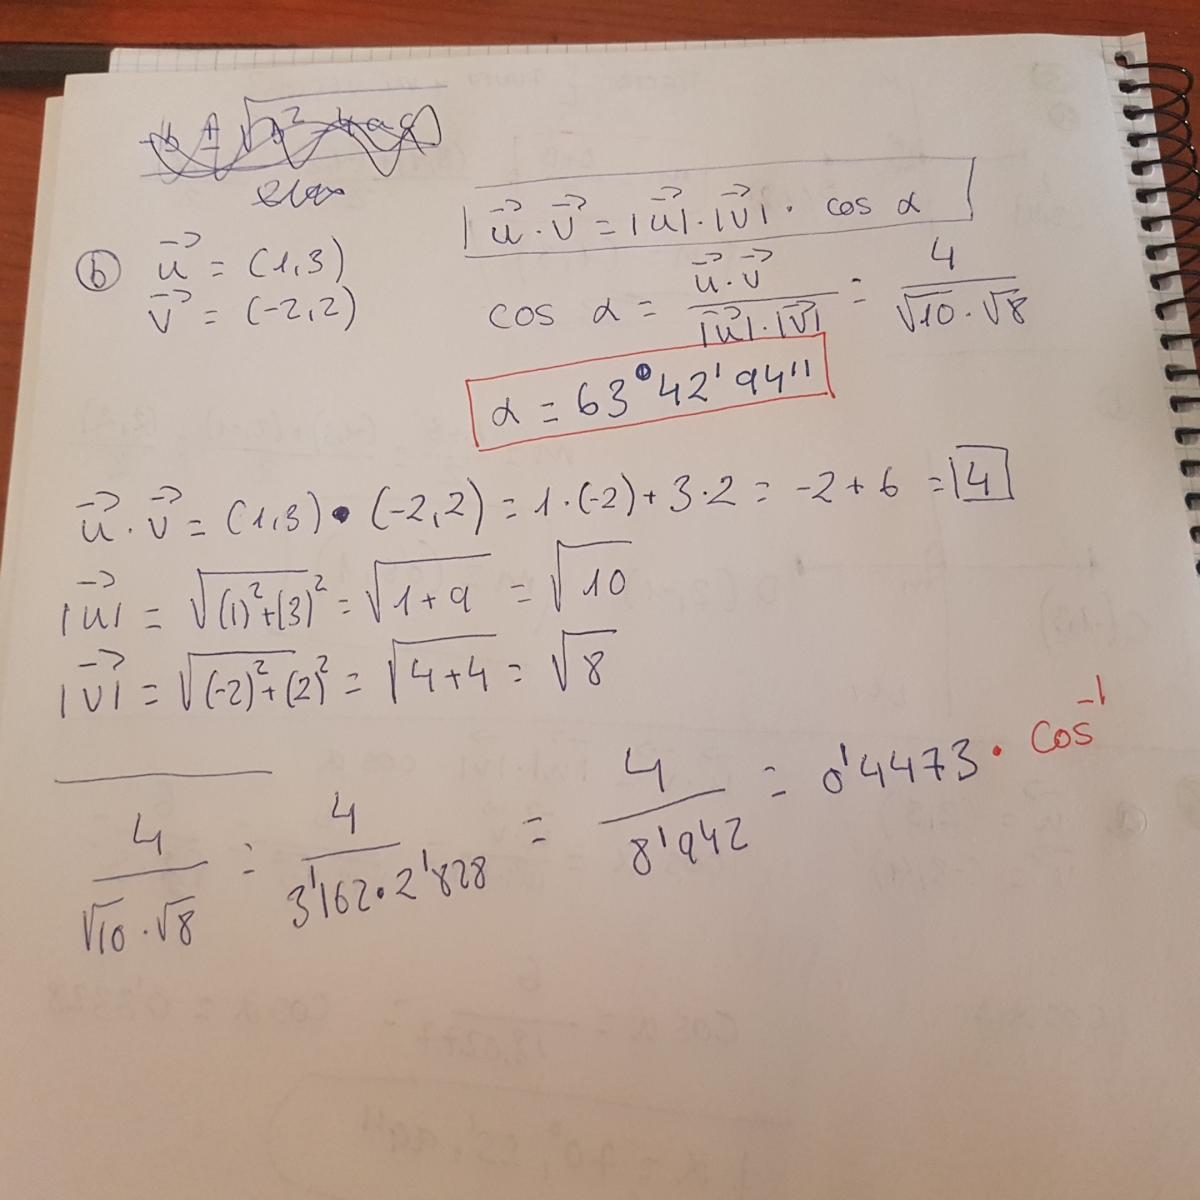 -b ± √b² - 4ac
u⃗ · v⃗ = |u⃗| · |v⃗| · cos α
b u⃗ = (1,3)
v⃗ = (-2,2)
cos α = u⃗ · v⃗ / |u⃗| · |v⃗| = 4 / √10 · √8
α = 63° 42' 94''
u⃗ · v⃗ = (1,3) • (-2,2) = 1 · (-2) + 3 · 2 = -2 + 6 = 4
|u⃗| = √(1)² + (3)² = √1 + 9 = √10
|v⃗| = √(-2)² + (2)² = √4 + 4 = √8
4 / √10 · √8 = 4 / 3'162 · 2'828 = 4 / 8'942 = 0'4473 · cos⁻¹